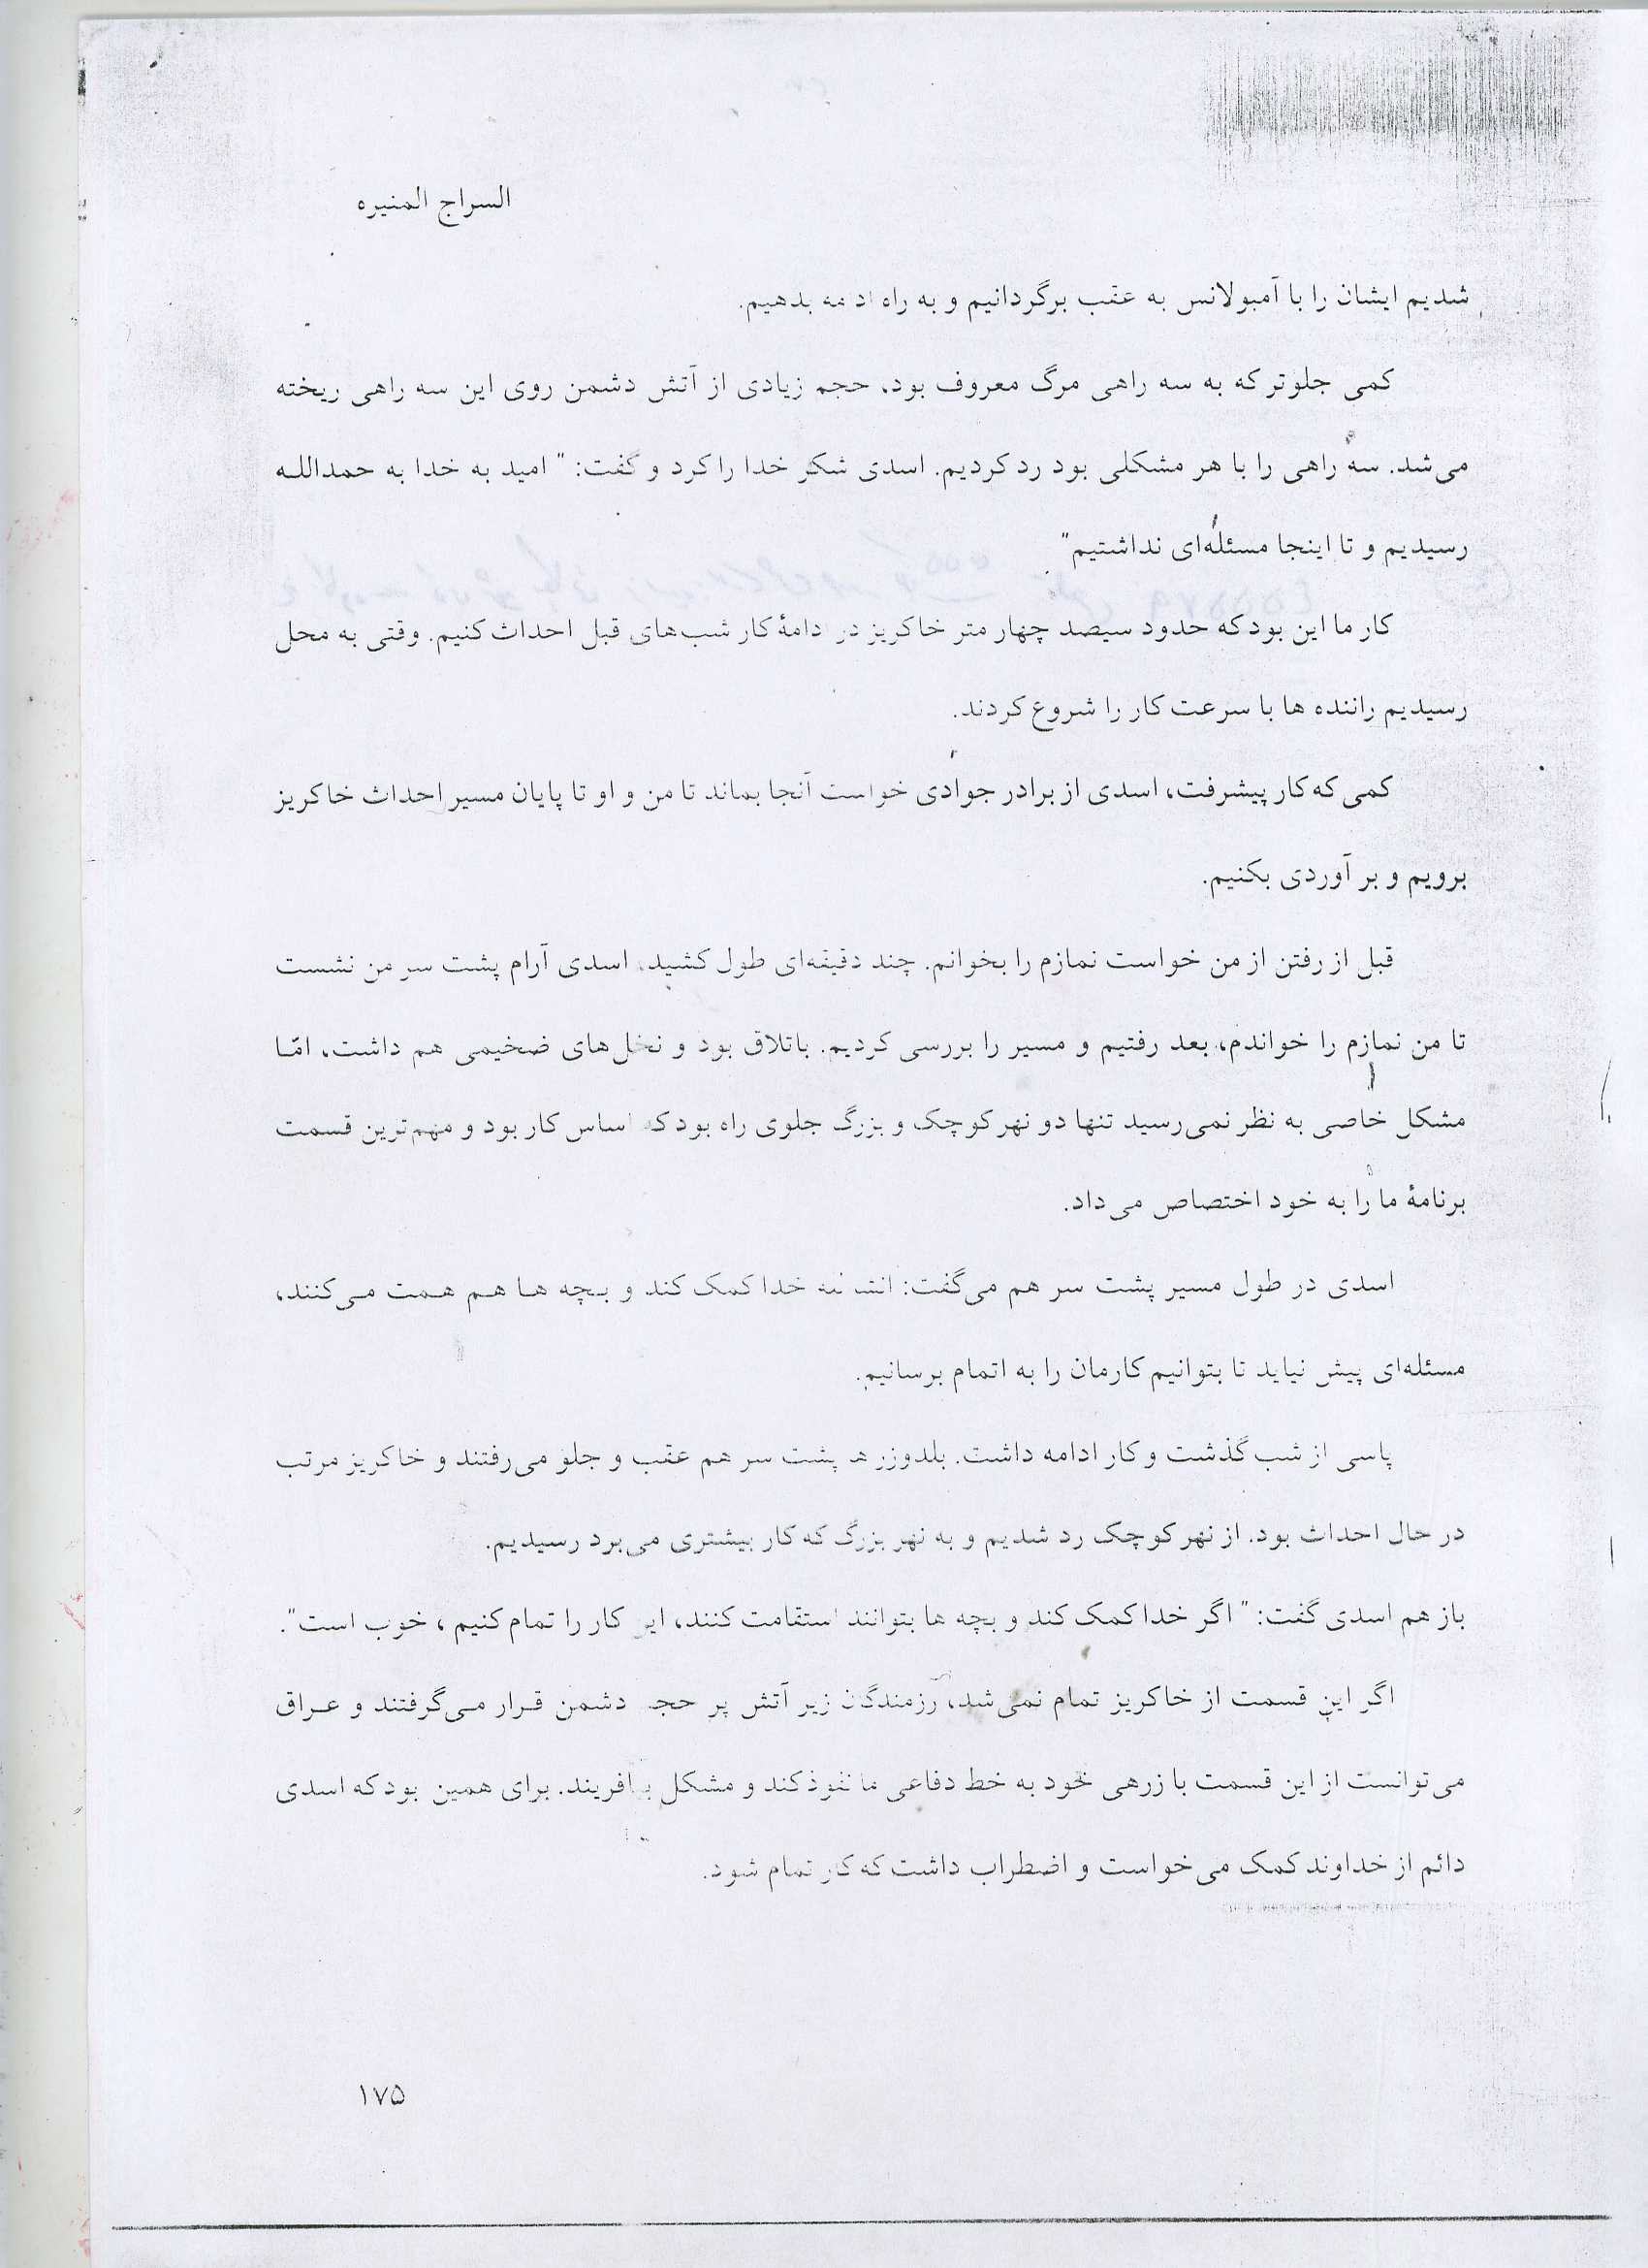 السراج المنیره
شدیم ایشان را با آمبولانس به عقب برگردانیم و به راه ادامه بدهیم.
کمی جلوتر که به سه راهی مرگ معروف بود، حجم زیادی از آتش دشمن روی این سه راهی ریخته
می‌شد. سه راهی را با هر مشکلی بود رد کردیم. اسدی شکر خدا را کرد و گفت: " امید به خدا به حمدالله
رسیدیم و تا اینجا مسئله‌ای نداشتیم"
کار ما این بود که حدود سیصد چهار متر خاکریز در ادامهٔ کار شب‌های قبل احداث کنیم. وقتی به محل
رسیدیم راننده ها با سرعت کار را شروع کردند.
کمی که کار پیشرفت، اسدی از برادر جوادی خواست آنجا بماند تا من و او تا پایان مسیر احداث خاکریز
برویم و بر آوردی بکنیم.
قبل از رفتن از من خواست نمازم را بخوانم. چند دقیقه‌ای طول کشید، اسدی آرام پشت سر من نشست
تا من نمازم را خواندم، بعد رفتیم و مسیر را بررسی کردیم. باتلاق بود و نخل‌های ضخیمی هم داشت، امّا
مشکل خاصی به نظر نمی‌رسید تنها دو نهر کوچک و بزرگ جلوی راه بود که اساس کار بود و مهم‌ترین قسمت
برنامهٔ ما را به خود اختصاص می‌داد.
اسدی در طول مسیر پشت سر هم می‌گفت: انشاءالله خدا کمک کند و بچه ها هم همت می‌کنند،
مسئله‌ای پیش نیاید تا بتوانیم کارمان را به اتمام برسانیم.
پاسی از شب گذشت و کار ادامه داشت. بلدوزر ها پشت سر هم عقب و جلو می‌رفتند و خاکریز مرتب
در حال احداث بود. از نهر کوچک رد شدیم و به نهر بزرگ که کار بیشتری می‌برد رسیدیم.
باز هم اسدی گفت: " اگر خدا کمک کند و بچه ها بتوانند استقامت کنند، این کار را تمام کنیم ، خوب است".
اگر این قسمت از خاکریز تمام نمی‌شد، رزمندگان زیر آتش پر حجم دشمن قرار می‌گرفتند و عراق
می‌توانست از این قسمت با زرهی خود به خط دفاعی ما نفوذ کند و مشکل بیافریند. برای همین بود که اسدی
دائم از خداوند کمک می‌خواست و اضطراب داشت که کار تمام شود.
۱۷۵